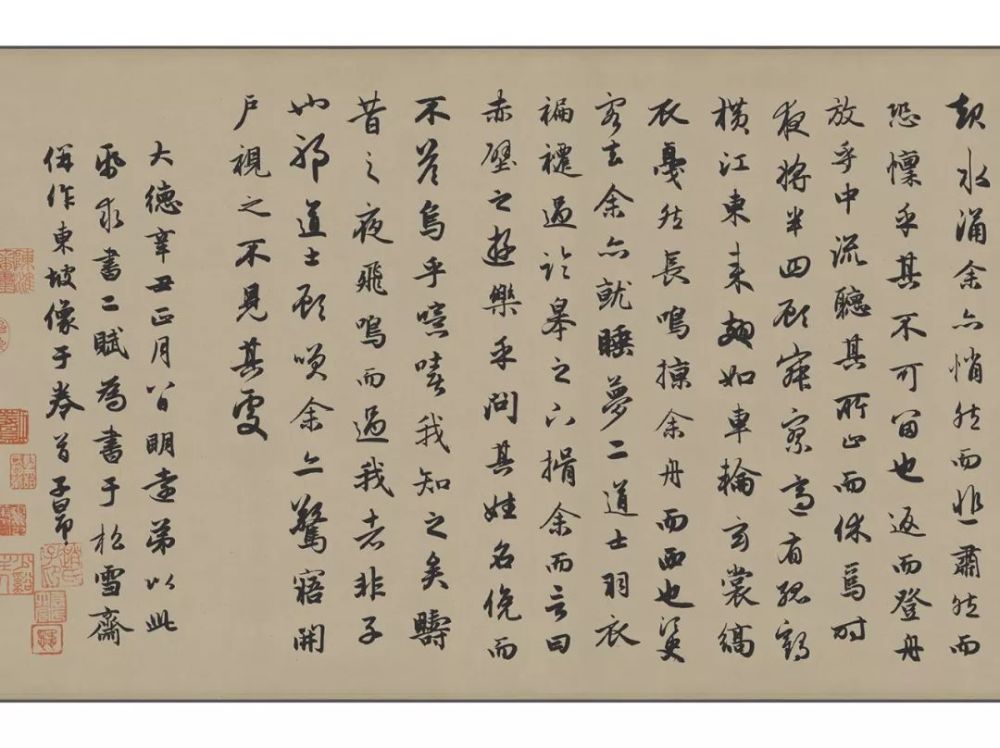 起水涌余亦悄然而悲肅然而
恐懍乎其不可留也返而登舟
放乎中流聽其所止而休焉時
夜將半四顧寂寥適有孤鶴
橫江東來翅如車輪玄裳縞
衣戛然長鳴掠余舟而西也須臾
客去余亦就睡夢二道士羽衣
褊褼過臨皋之下揖余而言曰
赤壁之遊樂乎問其姓名俛而
不答烏乎噫嘻我知之矣疇
昔之夜飛鳴而過我者非子
也邪道士顧笑余亦驚寤開
戶視之不見其處
大德辛丑正月八日明遠弟以此
紙求書二賦為書于松雪齋
併作東坡像于卷首子昂
趙氏子昂